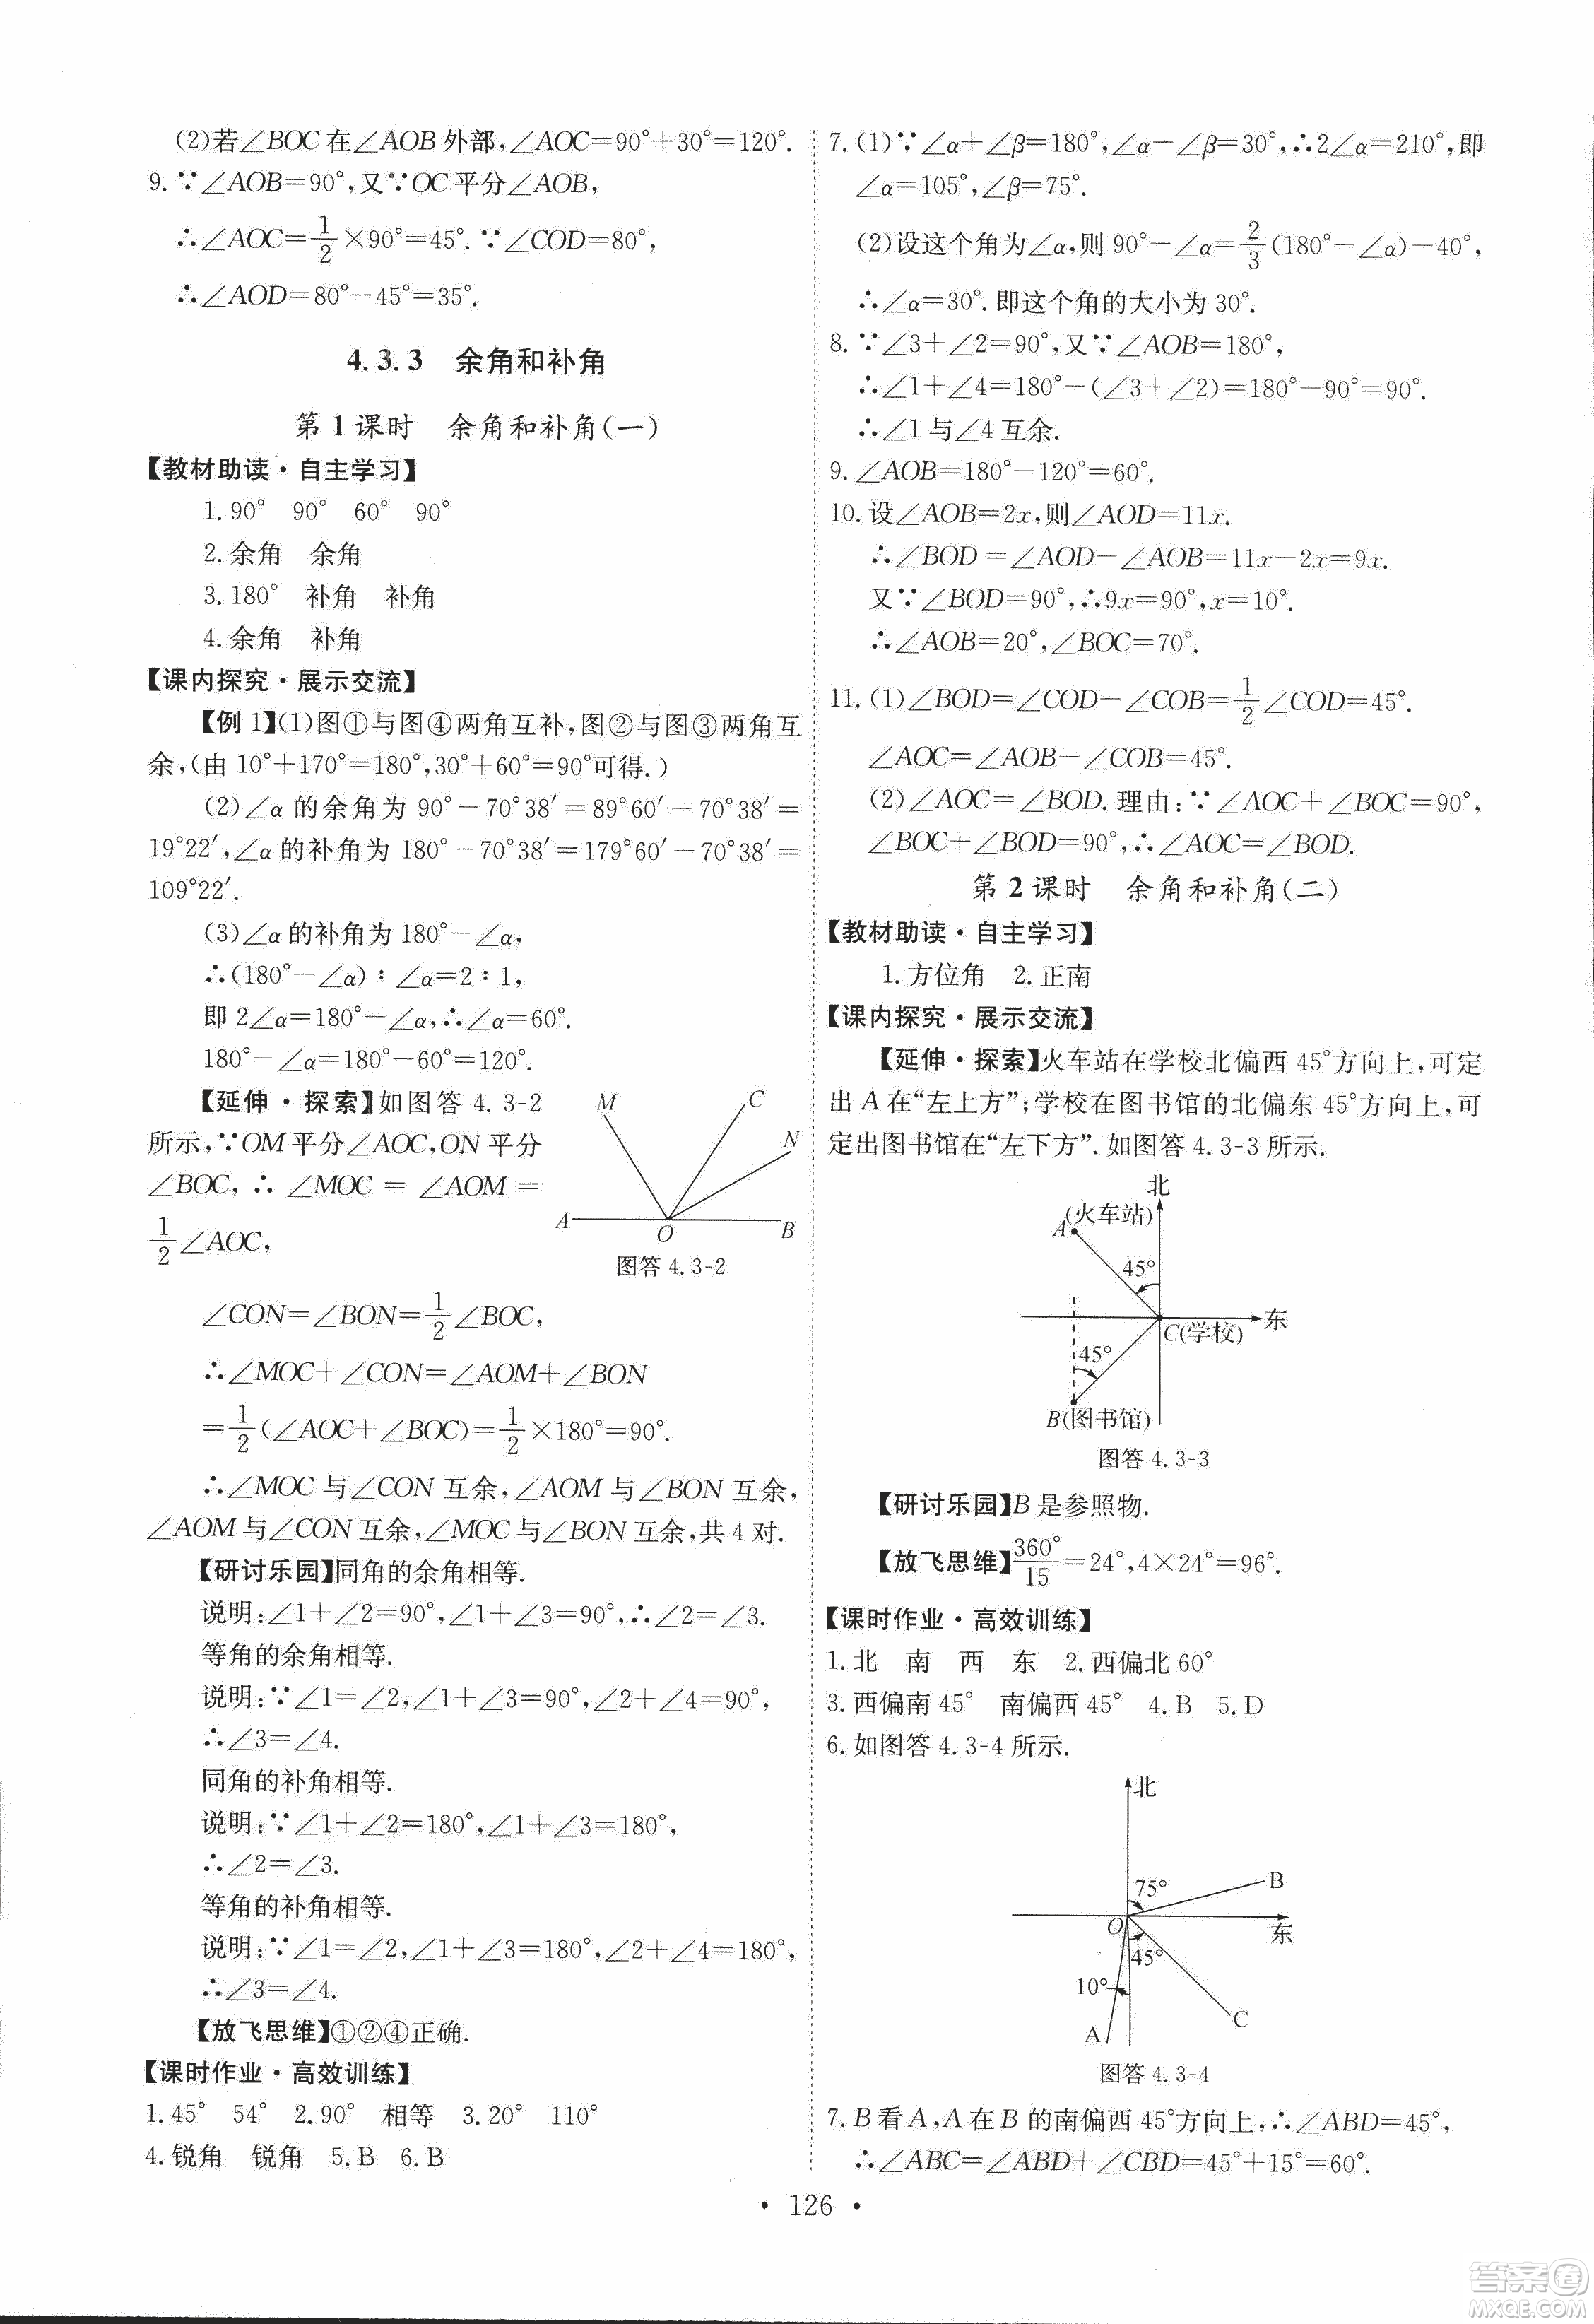 (2)若∠BOC在∠AOB外部,∠AOC=90°+30°=120°.
9.∵∠AOB=90°,又∵OC平分∠AOB,
∴∠AOC=1/2×90°=45°.∵∠COD=80°,
∴∠AOD=80°-45°=35°.
4.3.3 余角和补角
第1课时 余角和补角(一)
【教材助读·自主学习】
1.90° 90° 60° 90°
2.余角 余角
3.180° 补角 补角
4.余角 补角
【课内探究·展示交流】
【例1】(1)图①与图④两角互补,图②与图③两角互
余,(由10°+170°=180°,30°+60°=90°可得.)
(2)∠α的余角为90°-70°38′=89°60′-70°38′=
19°22′,∠α的补角为180°-70°38′=179°60′-70°38′=
109°22′.
(3)∠α的补角为180°-∠α,
∴(180°-∠α)∶∠α=2∶1,
即2∠α=180°-∠α,∴∠α=60°.
180°-∠α=180°-60°=120°.
【延伸·探索】如图答4.3-2
所示,∵OM平分∠AOC,ON平分
∠BOC,∴∠MOC=∠AOM=
1/2∠AOC,
M
C
N
A
O
B
图答4.3-2
∠CON=∠BON=1/2∠BOC,
∴∠MOC+∠CON=∠AOM+∠BON
=1/2(∠AOC+∠BOC)=1/2×180°=90°.
∴∠MOC与∠CON互余,∠AOM与∠BON互余,
∠AOM与∠CON互余,∠MOC与∠BON互余,共4对.
【研讨乐园】同角的余角相等.
说明:∠1+∠2=90°,∠1+∠3=90°,∴∠2=∠3.
等角的余角相等.
说明:∵∠1=∠2,∠1+∠3=90°,∠2+∠4=90°,
∴∠3=∠4.
同角的补角相等.
说明:∵∠1+∠2=180°,∠1+∠3=180°,
∴∠2=∠3.
等角的补角相等.
说明:∵∠1=∠2,∠1+∠3=180°,∠2+∠4=180°,
∴∠3=∠4.
【放飞思维】①②④正确.
【课时作业·高效训练】
1.45° 54° 2.90° 相等 3.20° 110°
4.锐角 锐角 5.B 6.B
7.(1)∵∠α+∠β=180°,∠α-∠β=30°,∴2∠α=210°,即
∠α=105°,∠β=75°.
(2)设这个角为∠α,则90°-∠α=2/3(180°-∠α)-40°,
∴∠α=30°.即这个角的大小为30°.
8.∵∠3+∠2=90°,又∵∠AOB=180°,
∴∠1+∠4=180°-(∠3+∠2)=180°-90°=90°.
∴∠1与∠4互余.
9.∠AOB=180°-120°=60°.
10.设∠AOB=2x,则∠AOD=11x.
∴∠BOD=∠AOD-∠AOB=11x-2x=9x.
又∵∠BOD=90°,∴9x=90°,x=10°.
∴∠AOB=20°,∠BOC=70°.
11.(1)∠BOD=∠COD-∠COB=1/2∠COD=45°.
∠AOC=∠AOB-∠COB=45°.
(2)∠AOC=∠BOD.理由:∵∠AOC+∠BOC=90°,
∠BOC+∠BOD=90°,∴∠AOC=∠BOD.
第2课时 余角和补角(二)
【教材助读·自主学习】
1.方位角 2.正南
【课内探究·展示交流】
【延伸·探索】火车站在学校北偏西45°方向上,可定
出A在“左上方”;学校在图书馆的北偏东45°方向上,可
定出图书馆在“左下方”.如图答4.3-3所示.
北
(火车站)
A
45°
东
C(学校)
45°
B(图书馆)
图答4.3-3
【研讨乐园】B是参照物.
【放飞思维】360°/15=24°,4×24°=96°.
【课时作业·高效训练】
1.北 南 西 东 2.西偏北60°
3.西偏南45° 南偏西45° 4.B 5.D
6.如图答4.3-4所示.
北
75°
B
O
东
45°
10°
C
A
图答4.3-4
7.B看A,A在B的南偏西45°方向上,∴∠ABD=45°,
∴∠ABC=∠ABD+∠CBD=45°+15°=60°.
• 126 •
答案圈
MXQE.COM